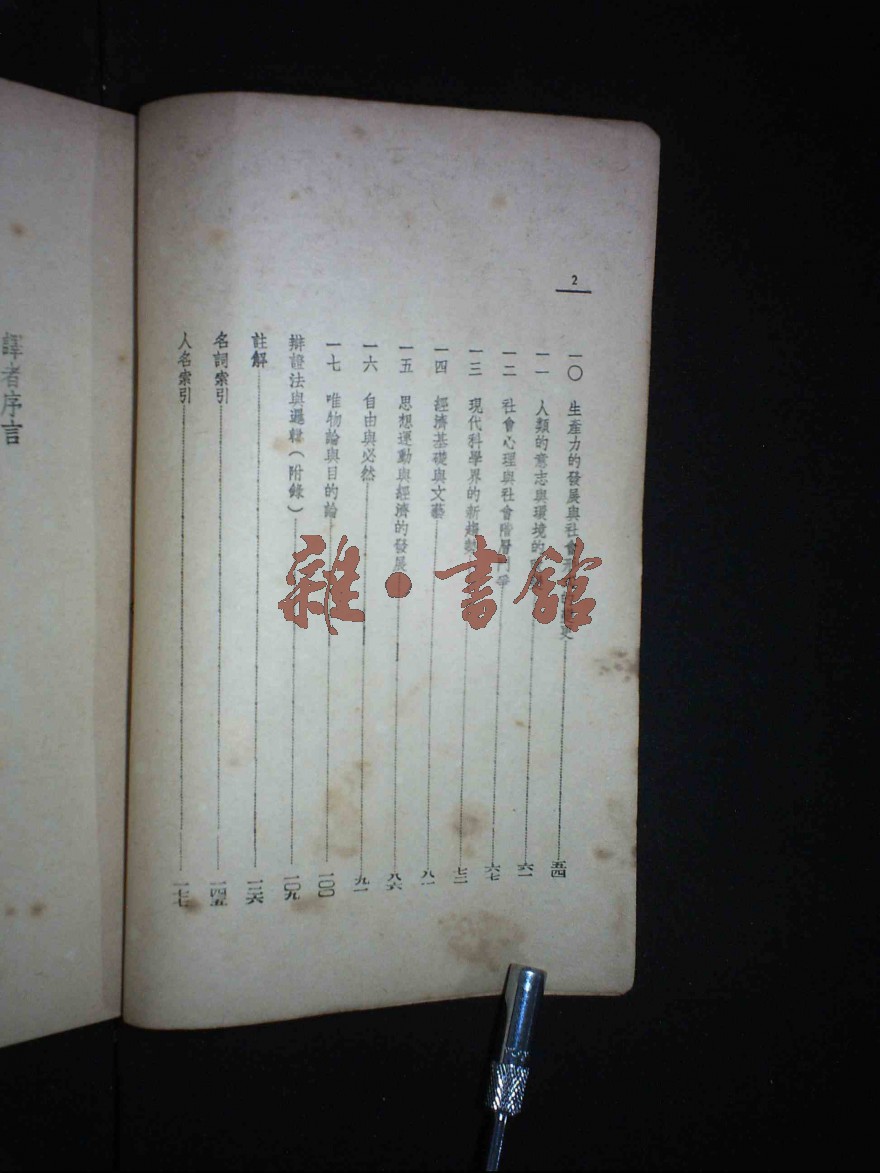 2
一〇 生產力的發展與社會
一一 人類的意志與環境的
一二 社會心理與社會階層
一三 現代科學界的新趨勢
一四 經濟基礎與文藝
一五 思想運動與經濟的發展
一六 自由與必然
一七 唯物論與目的論
辯證法與邏輯(附錄)
註解
名詞索引
人名索引
五四
六一
六七
七二
八一
八六
九一
一〇〇
一〇九
一三六
一四五
一七七
譯者序言
雜·書館